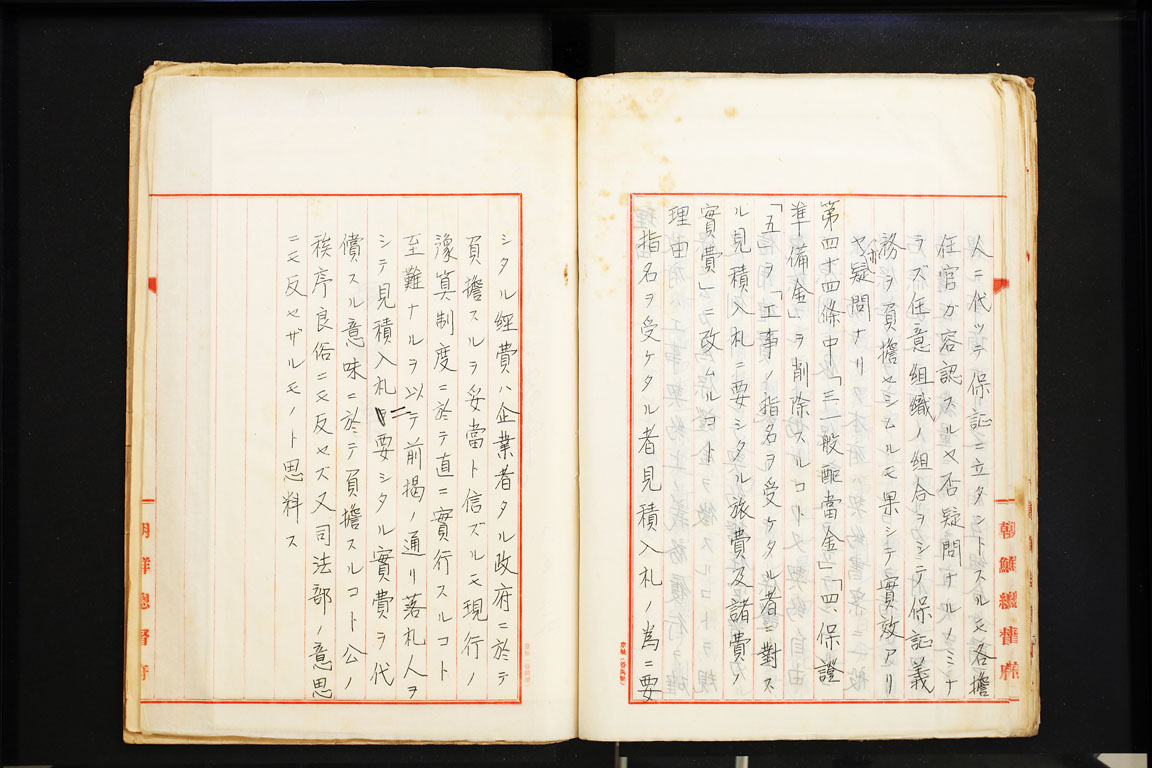 人ニ代ッテ保証ニ立タントスルモ各擔
任官ガ容認スルヤ否疑問ナルノミナ
ラズ任意組織ノ組合ヲシテ保証義
務ヲ負擔セシムルモ果シテ實效アリ
ヤ疑問ナリ
第四十四條中「三一般配當金」「四、保證
準備金」ヲ削除スルコト
「五」ヲ「工事ノ指名ヲ受ケタル者ニ對ス
ル見積入札ニ要シタル旅費及諸費ノ
實費」ニ改ムルコト
理由
指名ヲ受ケタル者見積入札ノ為ニ要
朝鮮總督府
シタル經費ハ企業者タル政府ニ於テ
負擔スルヲ妥當ト信ズルモ現行ノ
豫算制度ニ於テ直ニ實行スルコト
至難ナルヲ以テ前揭ノ通リ落札人ヲ
シテ見積入札ニ要シタル實費ヲ代
償スル意味ニ於テ負擔スルコト公ノ
秩序良俗ニモ反セズ又司法部ノ意思
ニモ反セザルモノト思料ス
朝鮮總督府